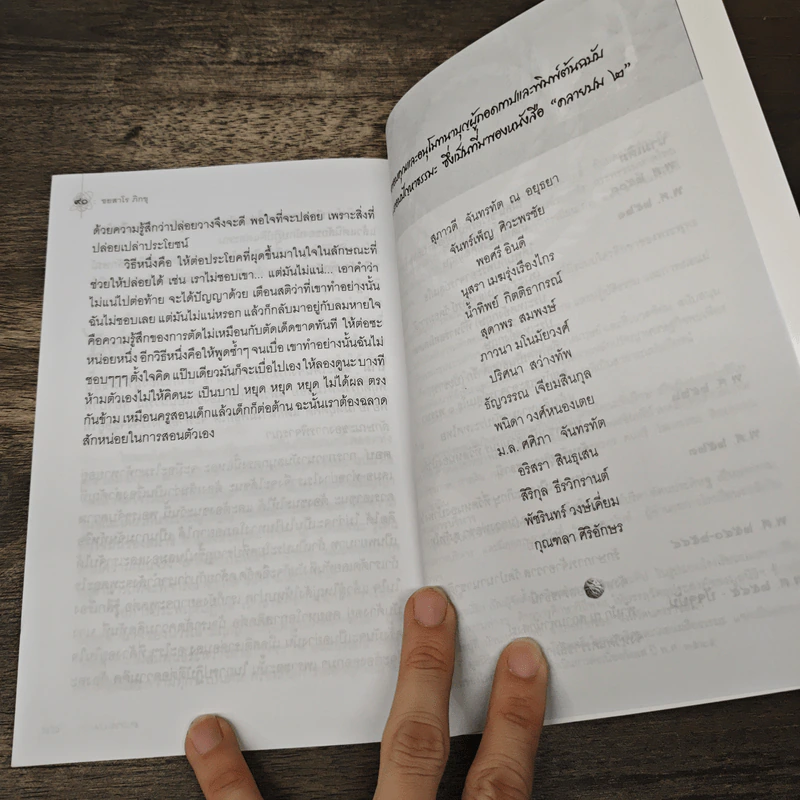 ๙๐ ชยสาโร ภิกขุ
ด้วยความรู้สึกว่าปล่อยวางจึงจะดี พอใจที่จะปล่อย เพราะสิ่งที่
ปล่อยเปล่าประโยชน์
วิธีหนึ่งคือ ให้ต่อประโยคที่ผุดขึ้นมาในใจในลักษณะที่
ช่วยให้ปล่อยได้ เช่น เราไม่ชอบเขา... แต่มันไม่แน่... เอาคำว่า
ไม่แน่ไปต่อท้าย จะได้ปัญญาด้วย เตือนสติว่าที่เขาทำอย่างนั้น
ฉันไม่ชอบเลย แต่มันไม่แน่หรอก แล้วก็กลับมาอยู่กับลมหายใจ
คือความรู้สึกของการตัดไม่เหมือนกับตัดเด็ดขาดทันที ให้ต่อซะ
หน่อยหนึ่ง อีกวิธีหนึ่งคือให้พูดซ้ำๆ จนเบื่อ เขาทำอย่างนั้นฉันไม่
ชอบๆๆๆ ตั้งใจคิด แป๊บเดียวมันก็จะเบื่อไปเอง ให้ลองดูนะ บางที
ห้ามตัวเองไม่ให้คิดนะ เป็นบาป หยุด หยุด หยุด ไม่ได้ผล ตรง
กันข้าม เหมือนครูสอนเด็กแล้วเด็กก็ต่อต้าน ฉะนั้นเราต้องฉลาด
สักหน่อยในการสอนตัวเอง
และอนุโมทนาบุญผู้ถอดเทปและพิมพ์ต้นฉบับ
ซึ่งเป็นที่มาของหนังสือ “คลายปม ๒”
สุภาวดี จันทรทัต ณ อยุธยา
จันทร์เพ็ญ ศิวะพรชัย
พอศรี อินดี
นุสรา เมฆรุ่งเรืองไกร
น้ำทิพย์ กิตติธากรณ์
สุดาพร สมพงษ์
ภาวนา มโนมัยวงศ์
ปริศนา สว่างทัพ
ธัญวรรณ เจียมสินกุล
พนิดา วงศ์หนองเตย
ม.ล. ศศิภา จันทรทัต
อริสรา สินธุเสน
สิริกุล ธีรวิกรานต์
พัชรินทร์ วงษ์เคี่ยม
กุณฑลา ศิริอักษร